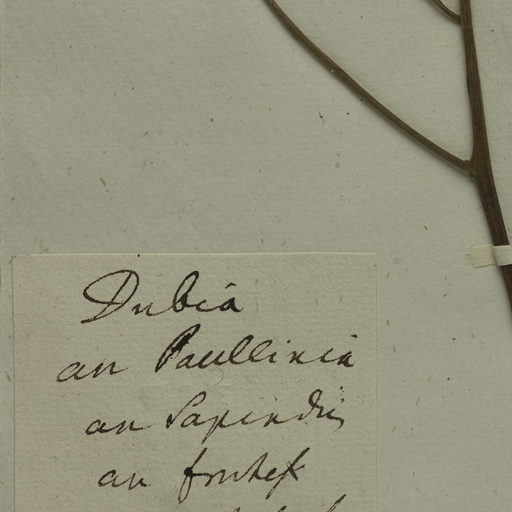 Dubia
an Paullinia
an Sapindus
an frutex